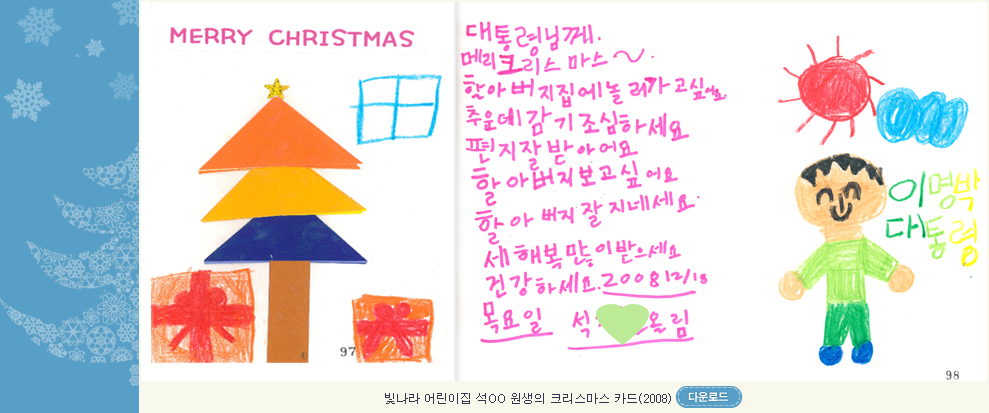 MERRY CHRISTMAS
97
대통령님께.
메리크리스마스~.
할아버지집에놀러가고싶어요
추운데감기조심하세요
편지잘받아어요
할아버지보고싶어요
할아버지잘지네세요.
세해복많이받으세요
건강하세요.2008 12/18
목요일 석 올림
이명박
대통령
98
빛나라 어린이집 석OO 원생의 크리스마스 카드(2008) 다운로드